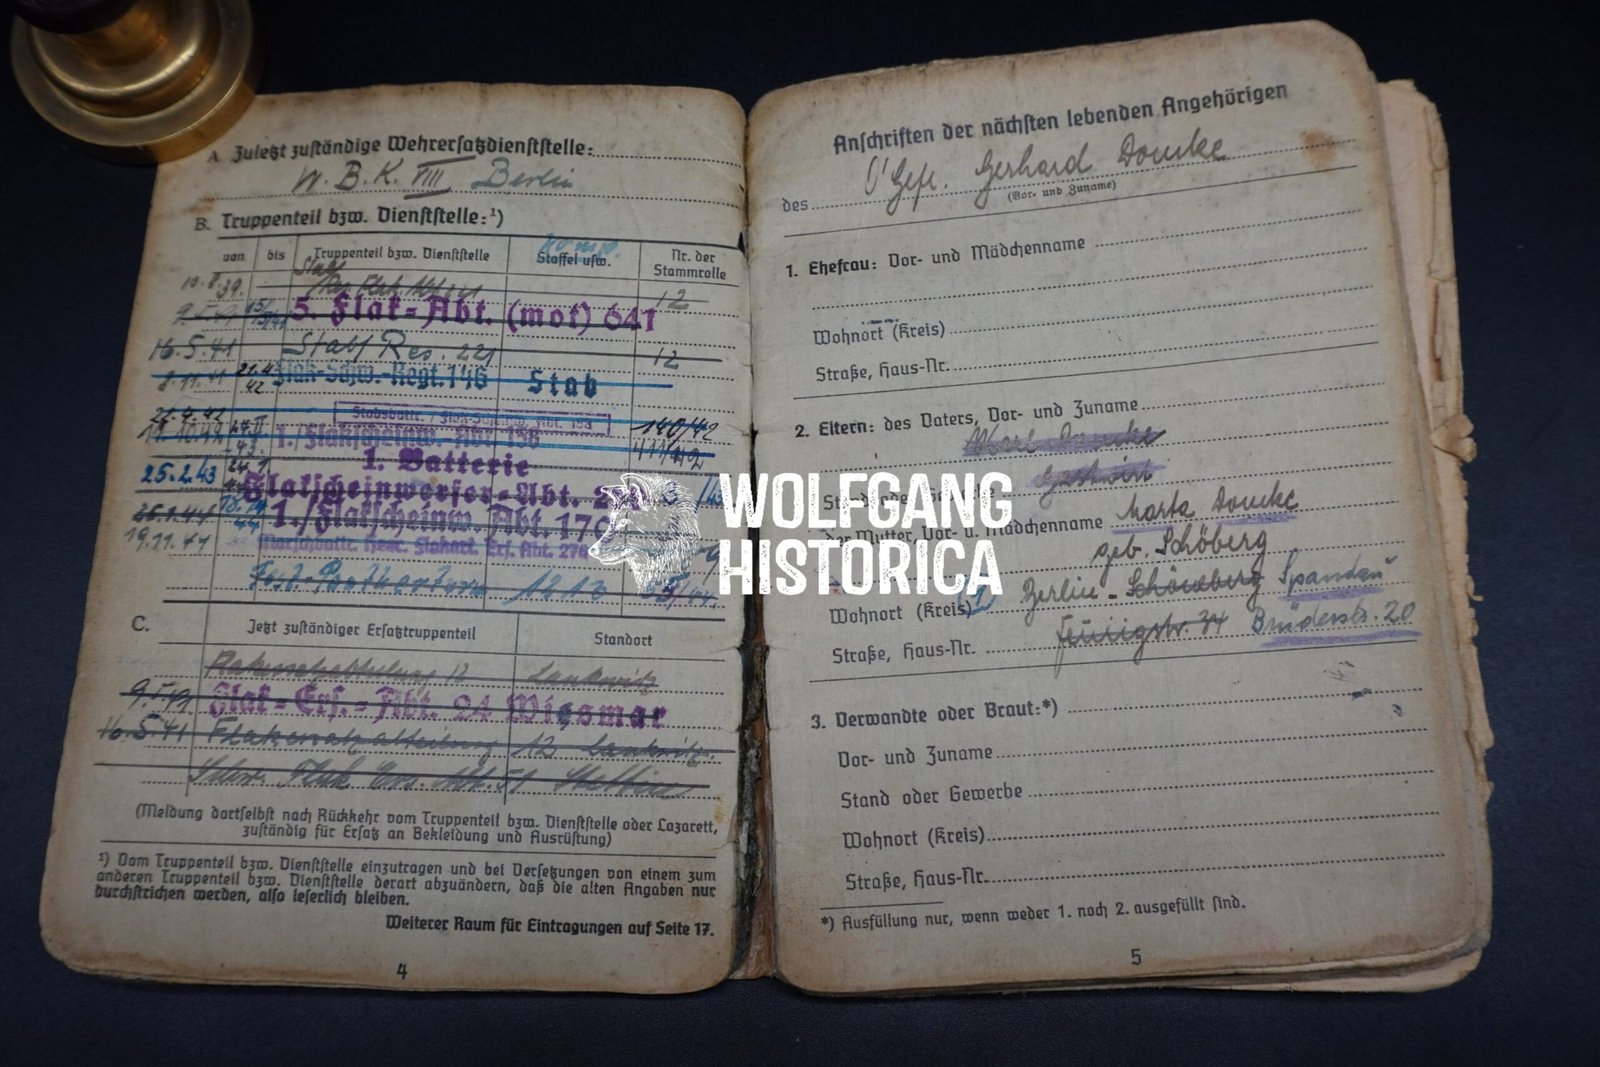 A. Zuletzt zuständige Wehrersatzdienststelle:
W. B. K. VIII Berlin
B. Truppenteil bzw. Dienststelle:¹)
von bis Truppenteil bzw. Dienststelle Staffel usw. Nr. der Stammrolle
10. 8. 39. Stab 12
5. Flak-Abt. (mot) 641
16.5.41 Stab Res. 221 12
8.11.41 21.4.42 Flak-Schw.-Regt. 146 Stab
21.4.42 140/42
1./Flakscheinw.-Abt. 158
1. Batterie
25.2.43 Flakscheinwerfer-Abt.
1./Flakscheinw. Abt. 176
19.11.44
C. Jetzt zuständiger Ersatztruppenteil Standort
Flakersatzabteilung 12 Lankwitz
Flak-Ers.-Abt. 24 Wismar
16.5.41 Flakersatzabteilung 12 Lankwitz.
Schw. Flak Ers. Abt. 51 Stettin
(Meldung dortselbst nach Rückkehr vom Truppenteil bzw. Dienststelle oder Lazarett,
zuständig für Ersatz an Bekleidung und Ausrüstung)
¹) Vom Truppenteil bzw. Dienststelle einzutragen und bei Versetzungen von einem zum
anderen Truppenteil bzw. Dienststelle derart abzuändern, daß die alten Angaben nur
durchstrichen werden, also leserlich bleiben.
Weiterer Raum für Eintragungen auf Seite 17.
4
Anschriften der nächsten lebenden Angehörigen
des O'Gefr. Gerhard Domke
(Vor- und Zuname)
1. Ehefrau: Vor- und Mädchenname
Wohnort (Kreis)
Straße, Haus-Nr.
2. Eltern: des Vaters, Vor- und Zuname
Karl Domke
Gastwirt
der Mutter, Vor- u. Mädchenname Marta Domke
geb. Schöberg
Wohnort (Kreis) Berlin-Schöneberg Spandau
Straße, Haus-Nr. Feurigstr. 34 Brüderstr. 20
3. Verwandte oder Braut:*)
Vor- und Zuname
Stand oder Gewerbe
Wohnort (Kreis)
Straße, Haus-Nr.
*) Ausfüllung nur, wenn weder 1. noch 2. ausgefüllt sind.
5
WOLFGANG
HISTORICA